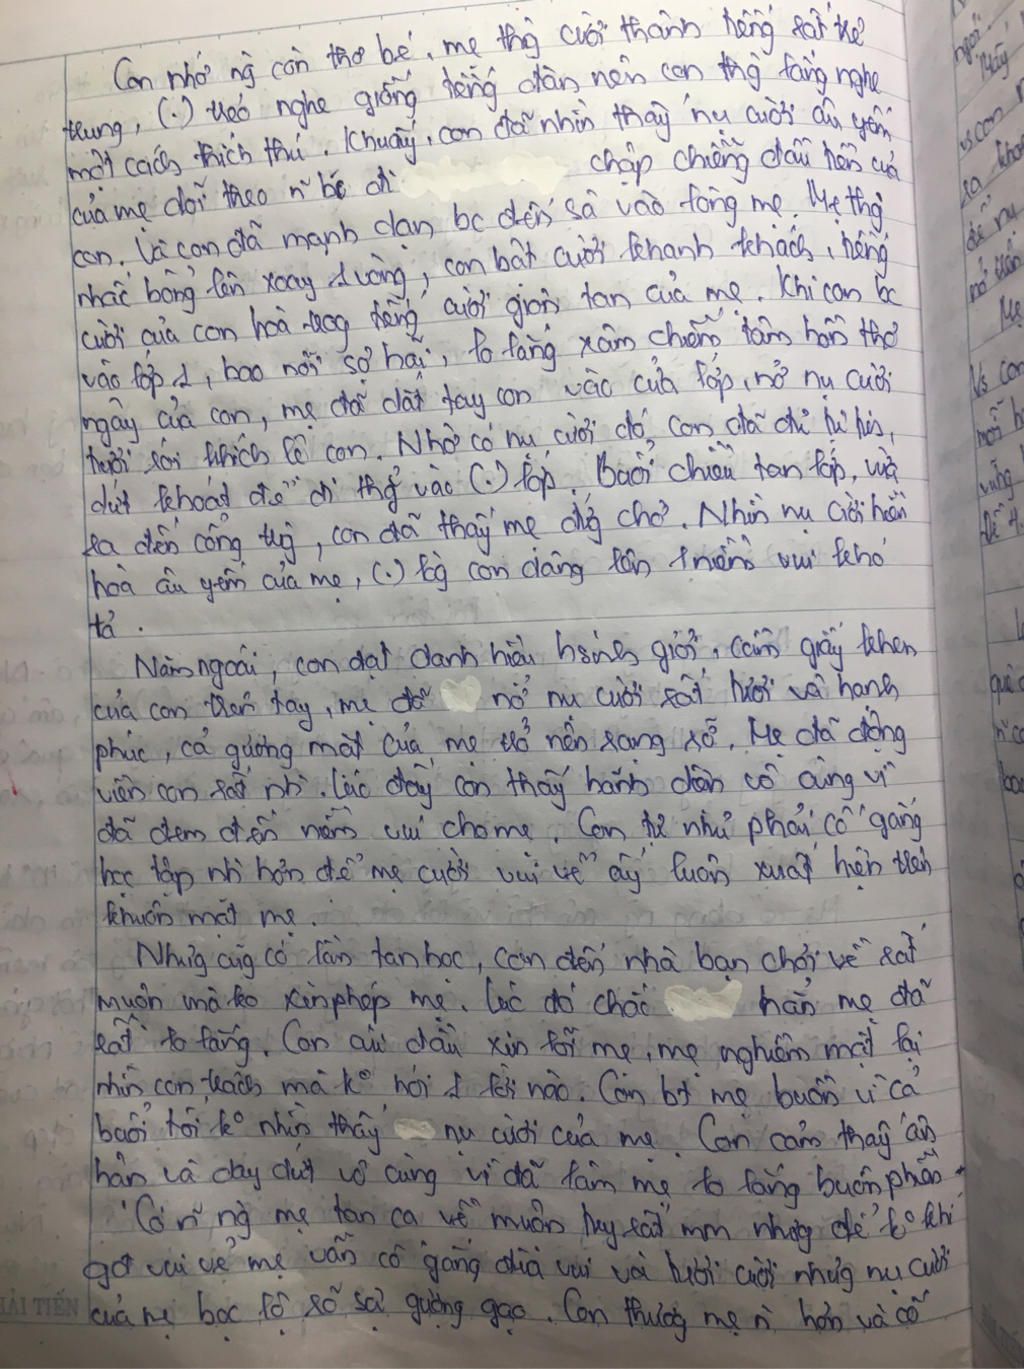 Con nhớ ng còn thơ bé, mẹ thg cười thành tiếng rất trẻ
trung, (.) trẻo nghe giống tiếng đàn nên con thg lắng nghe
một cách thích thú. Khuấy, con đã nhìn thấy nụ cười âu yếm
của mẹ dõi theo n bc đi chập chững đầu tiên của
con. Và con đã mạnh dạn bc đến sà vào lòng mẹ. Mẹ thg
nhấc bổng lên xoay 1 vòng, con bật cười khanh khách, tiếng
cười của con hoà trog tiếng cười giòn tan của mẹ. Khi con bc
vào lớp 1, bao nỗi sợ hãi, lo lắng xâm chiếm tâm hồn thơ
ngây của con, mẹ đã dắt tay con vào cửa lớp, nở nụ cười
tươi rói khích lệ con. Nhờ có nụ cười đó, con đã đủ tự tin,
dứt khoát để đi thg vào (.) lớp. Buổi chiều tan lớp, vừa
ra đến cổng trg, con đã thấy mẹ đứg chờ. Nhìn nụ cười hiền
hoà âu yếm của mẹ, (.) lòg con dâng lên 1 niềm vui khó
tả.
Năm ngoái, con đạt danh hiệu hsinh giỏi, cầm giấy khen
của con trên tay, mẹ đã nở nụ cười rất tươi và hạnh
phúc, cả gương mặt của mẹ trở nên rạng rỡ. Mẹ đã động
viên con rất nh. Lúc đấy con thấy hãnh diện vô cùng vì
đã đem đến niềm vui cho mẹ. Con tự nhủ phải cố gắng
học tập nh hơn để mẹ cười vui vẻ ấy luôn xuất hiện trên
khuôn mặt mẹ.
Nhưng cũg có lần tan học, con đến nhà bạn chơi về rất
muộn mà ko xin phép mẹ. Lúc đó chắc hẳn mẹ đã
rất lo lắng. Con cúi đầu xin lỗi mẹ, mẹ nghiêm mặt lại
nhìn con, trách mà k° nói 1 lời nào. Con bt mẹ buồn vì cả
buổi tối k° nhìn thấy nụ cười của mẹ. Con cảm thấy ân
hận và day dứt vô cùng vì đã làm mẹ lo lắng buồn phiền.
Có n ng mẹ tan ca về muộn tuy rất mm nhưg để k° khí
gđ vui vẻ mẹ vẫn cố gắng đùa vui và tươi cười nhưg nụ cười
của mẹ bộc lộ rõ sự gượng gạo. Con thươg mẹ n hơn và cố